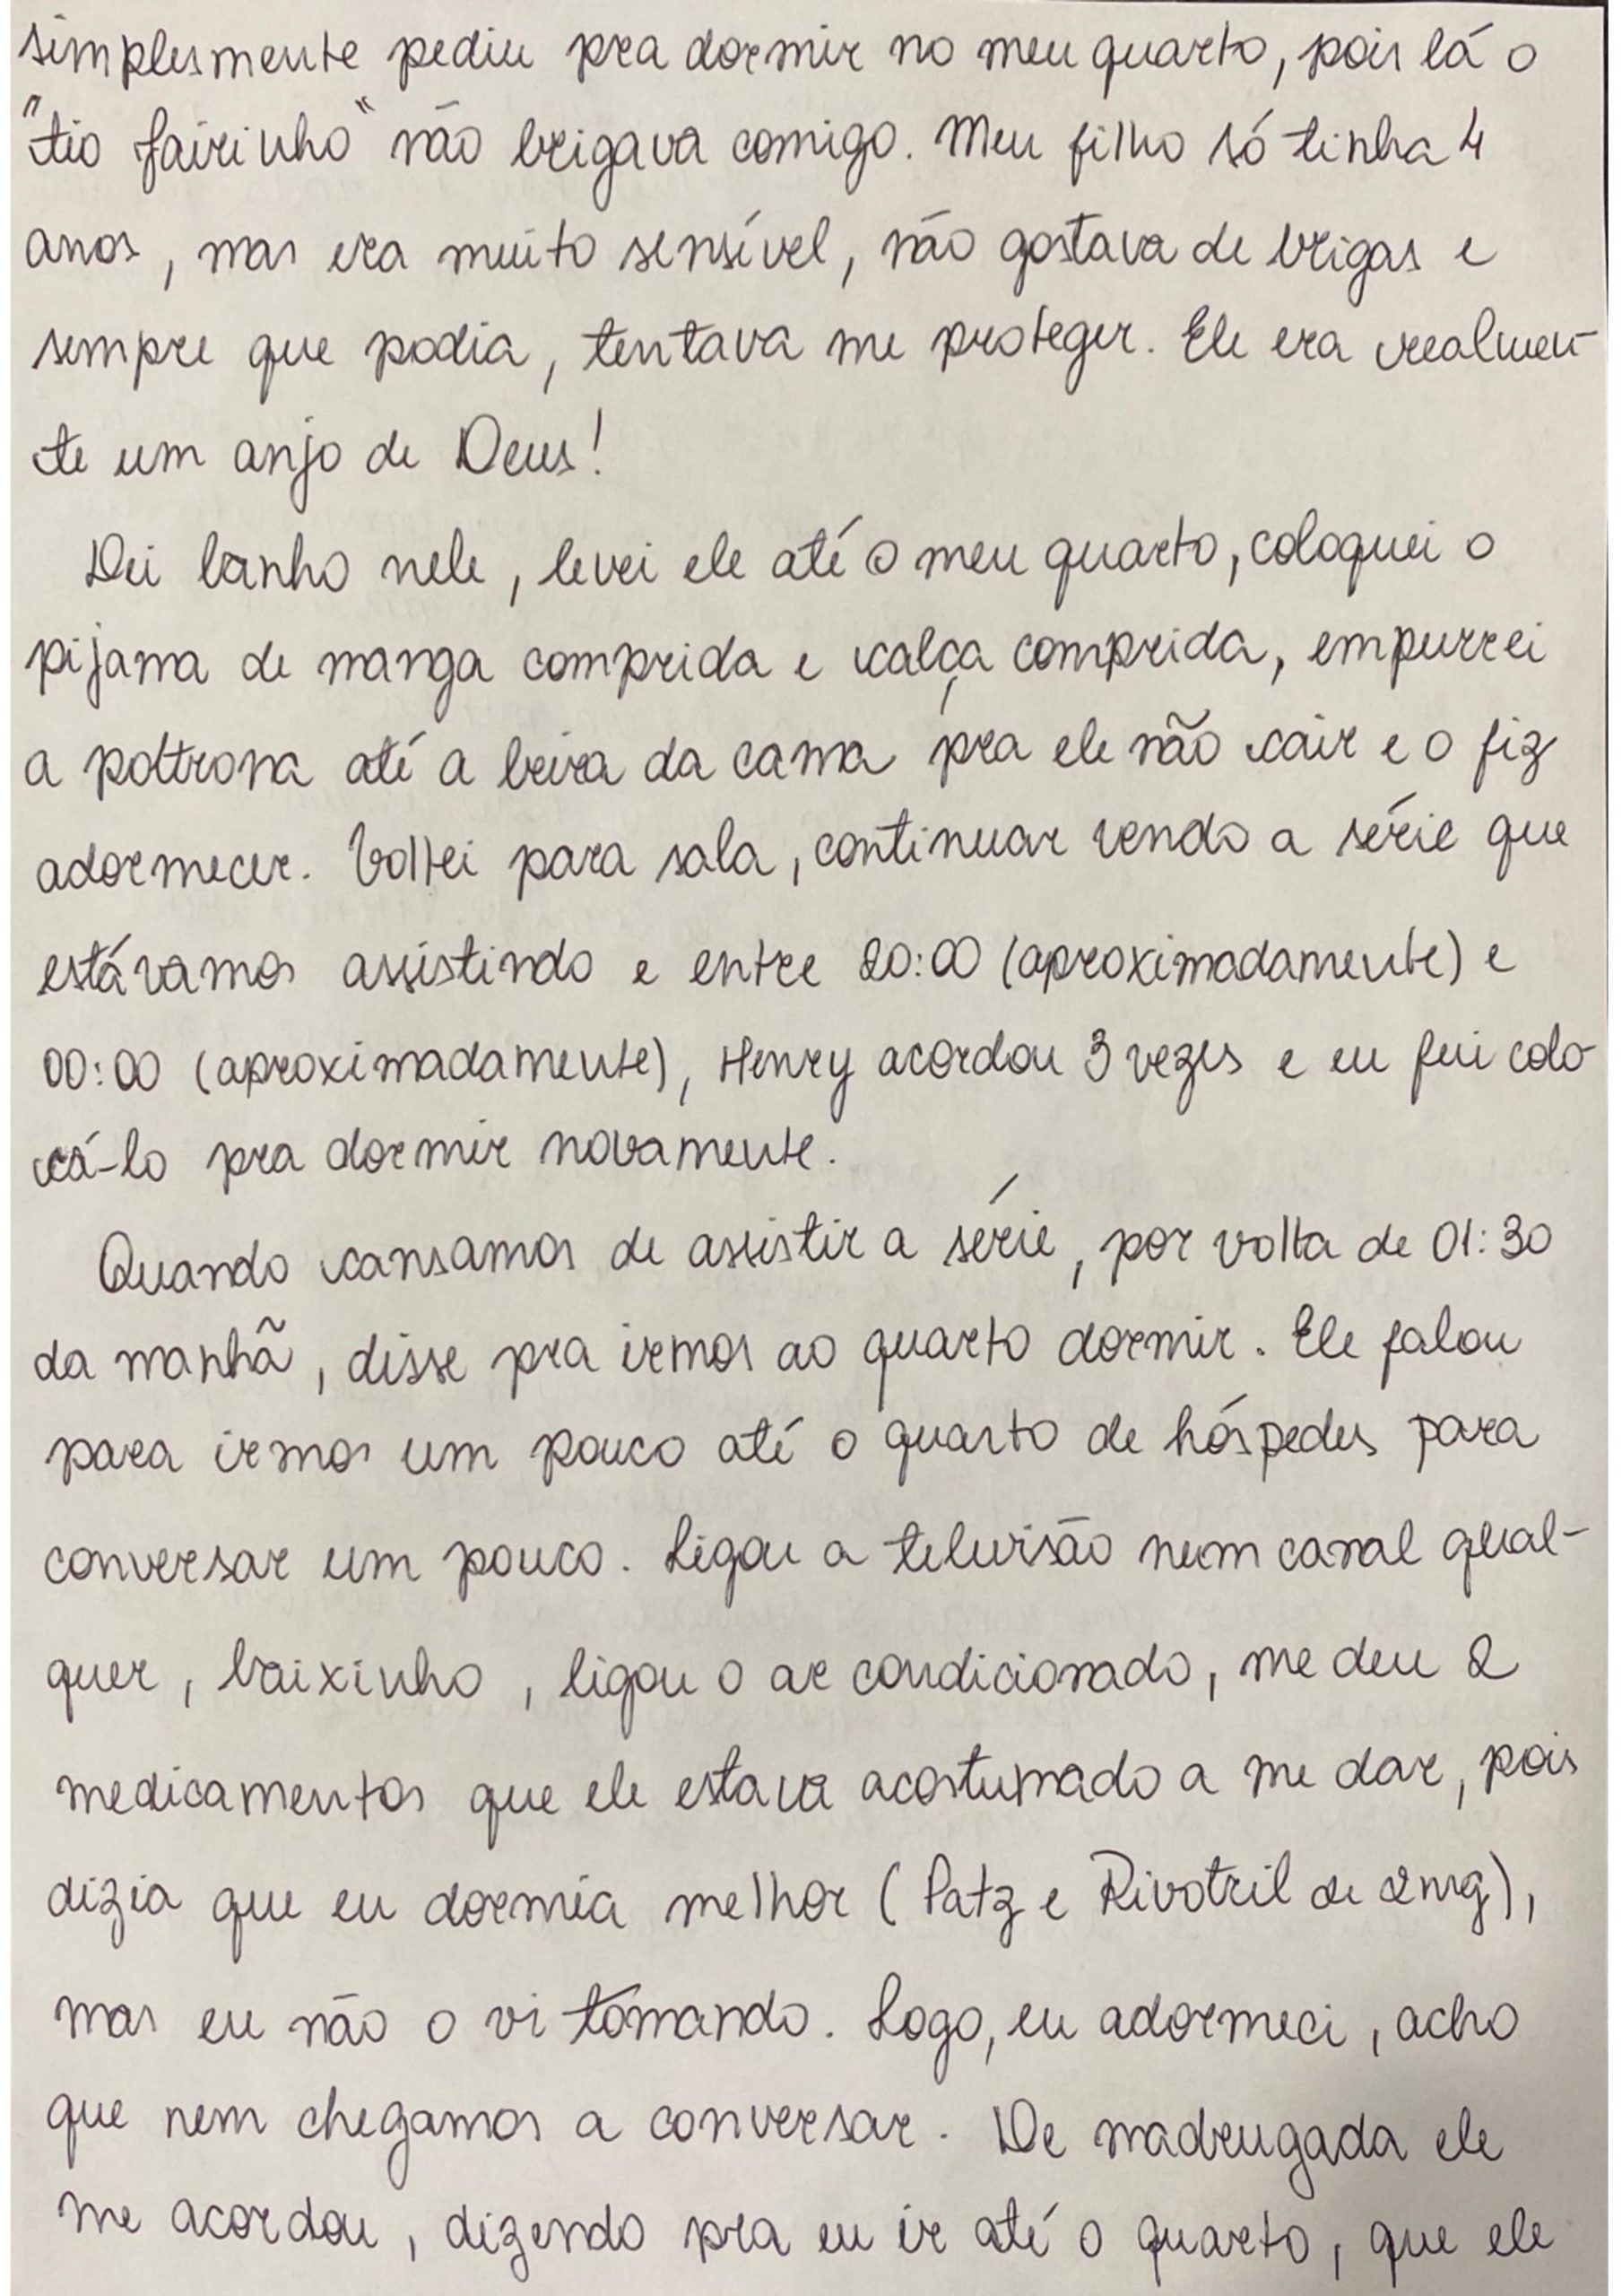 simplesmente pediu pra dormir no meu quarto, pois lá o
"tio Jairinho" não brigava comigo. Meu filho só tinha 4
anos, mas era muito sensível, não gostava de brigas e
sempre que podia, tentava me proteger. Ele era realmen-
te um anjo de Deus!
Dei banho nele, levei ele até o meu quarto, coloquei o
pijama de manga comprida e calça comprida, empurrei
a poltrona até a beira da cama pra ele não cair e o fiz
adormecer. Voltei para sala, continuar vendo a série que
estávamos assistindo e entre 20:00 (aproximadamente) e
00:00 (aproximadamente), Henry acordou 3 vezes e eu fui colo-
cá-lo pra dormir novamente.
Quando cansamos de assistir a série, por volta de 01:30
da manhã, disse pra irmos ao quarto dormir. Ele falou
para irmos um pouco até o quarto de hóspedes para
conversar um pouco. Ligou a televisão num canal qual-
quer, baixinho, ligou o ar condicionado, me deu 2
medicamentos que ele estava acostumado a me dar, pois
dizia que eu dormia melhor (Patz e Rivotril de 2mg),
mas eu não o vi tomando. Logo, eu adormeci, acho
que nem chegamos a conversar. De madrugada ele
me acordou, dizendo pra eu ir até o quarto, que ele